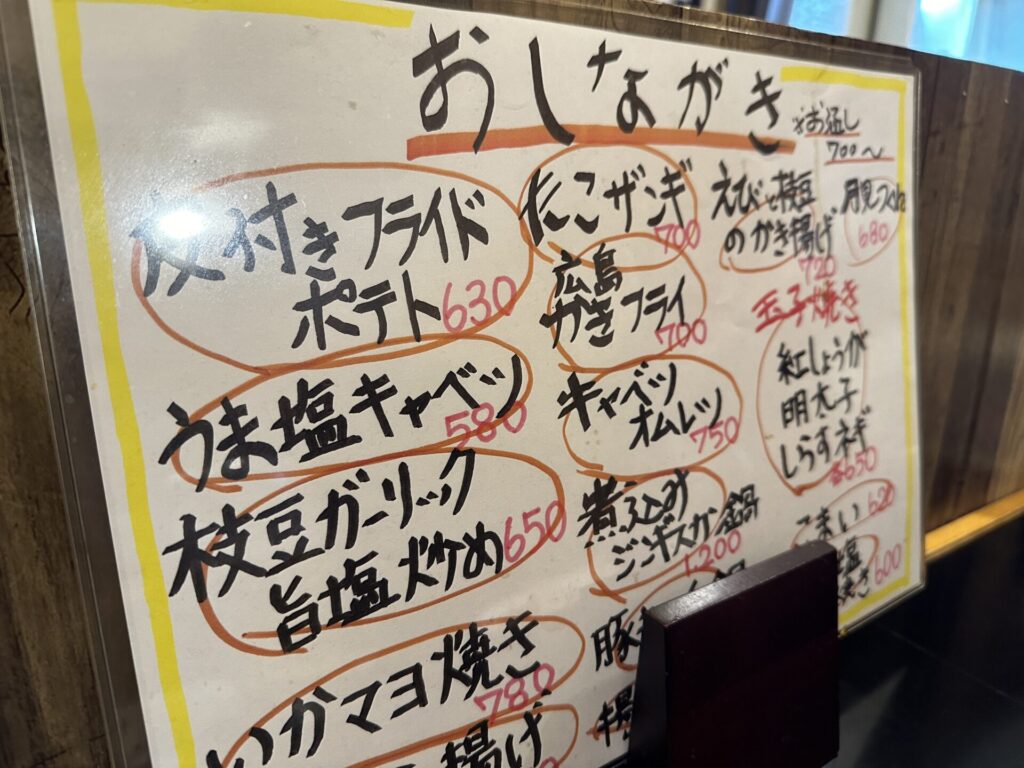 おしながき
※お通し
700〜
皮付きフライド
ポテト 630
うま塩キャベツ
580
枝豆ガーリック
旨塩炒め 650
いかマヨ焼き
780
揚げ
たこザンギ
700
広島
かきフライ
700
キャベツ
オムレツ 750
煮込み
ジンギスカン鍋
1200
鍋
豚
揚
えびと枝豆
のかき揚げ
720
月見つくね
680
玉子焼き
紅しょうが
明太子
しらすネギ
各650
こまい 620
塩
焼き 600